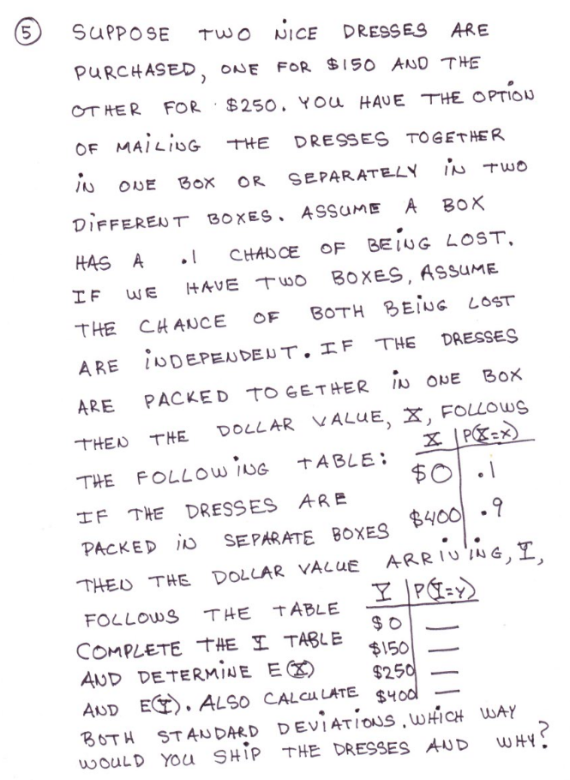 5 SUPPOSE TWO NICE DRESSES ARE
PURCHASED, ONE FOR $150 AND THE
OTHER FOR $250. YOU HAVE THE OPTION
OF MAILING THE DRESSES TOGETHER
IN ONE BOX OR SEPARATELY IN TWO
DIFFERENT BOXES. ASSUME A BOX
HAS A .1 CHANCE OF BEING LOST.
IF WE HAVE TWO BOXES, ASSUME
THE CHANCE OF BOTH BEING LOST
ARE INDEPENDENT. IF THE DRESSES
ARE PACKED TOGETHER IN ONE BOX
THEN THE DOLLAR VALUE, X, FOLLOWS
THE FOLLOWING TABLE:
X P(X=x)
$0 .1
$400 .9
IF THE DRESSES ARE
PACKED IN SEPARATE BOXES
THEN THE DOLLAR VALUE ARRIVING, Y,
FOLLOWS THE TABLE
Y P(Y=y)
$0 —
$150 —
$250 —
$400 —
COMPLETE THE Y TABLE
AND DETERMINE E(X)
AND E(Y). ALSO CALCULATE
BOTH STANDARD DEVIATIONS. WHICH WAY
WOULD YOU SHIP THE DRESSES AND WHY?